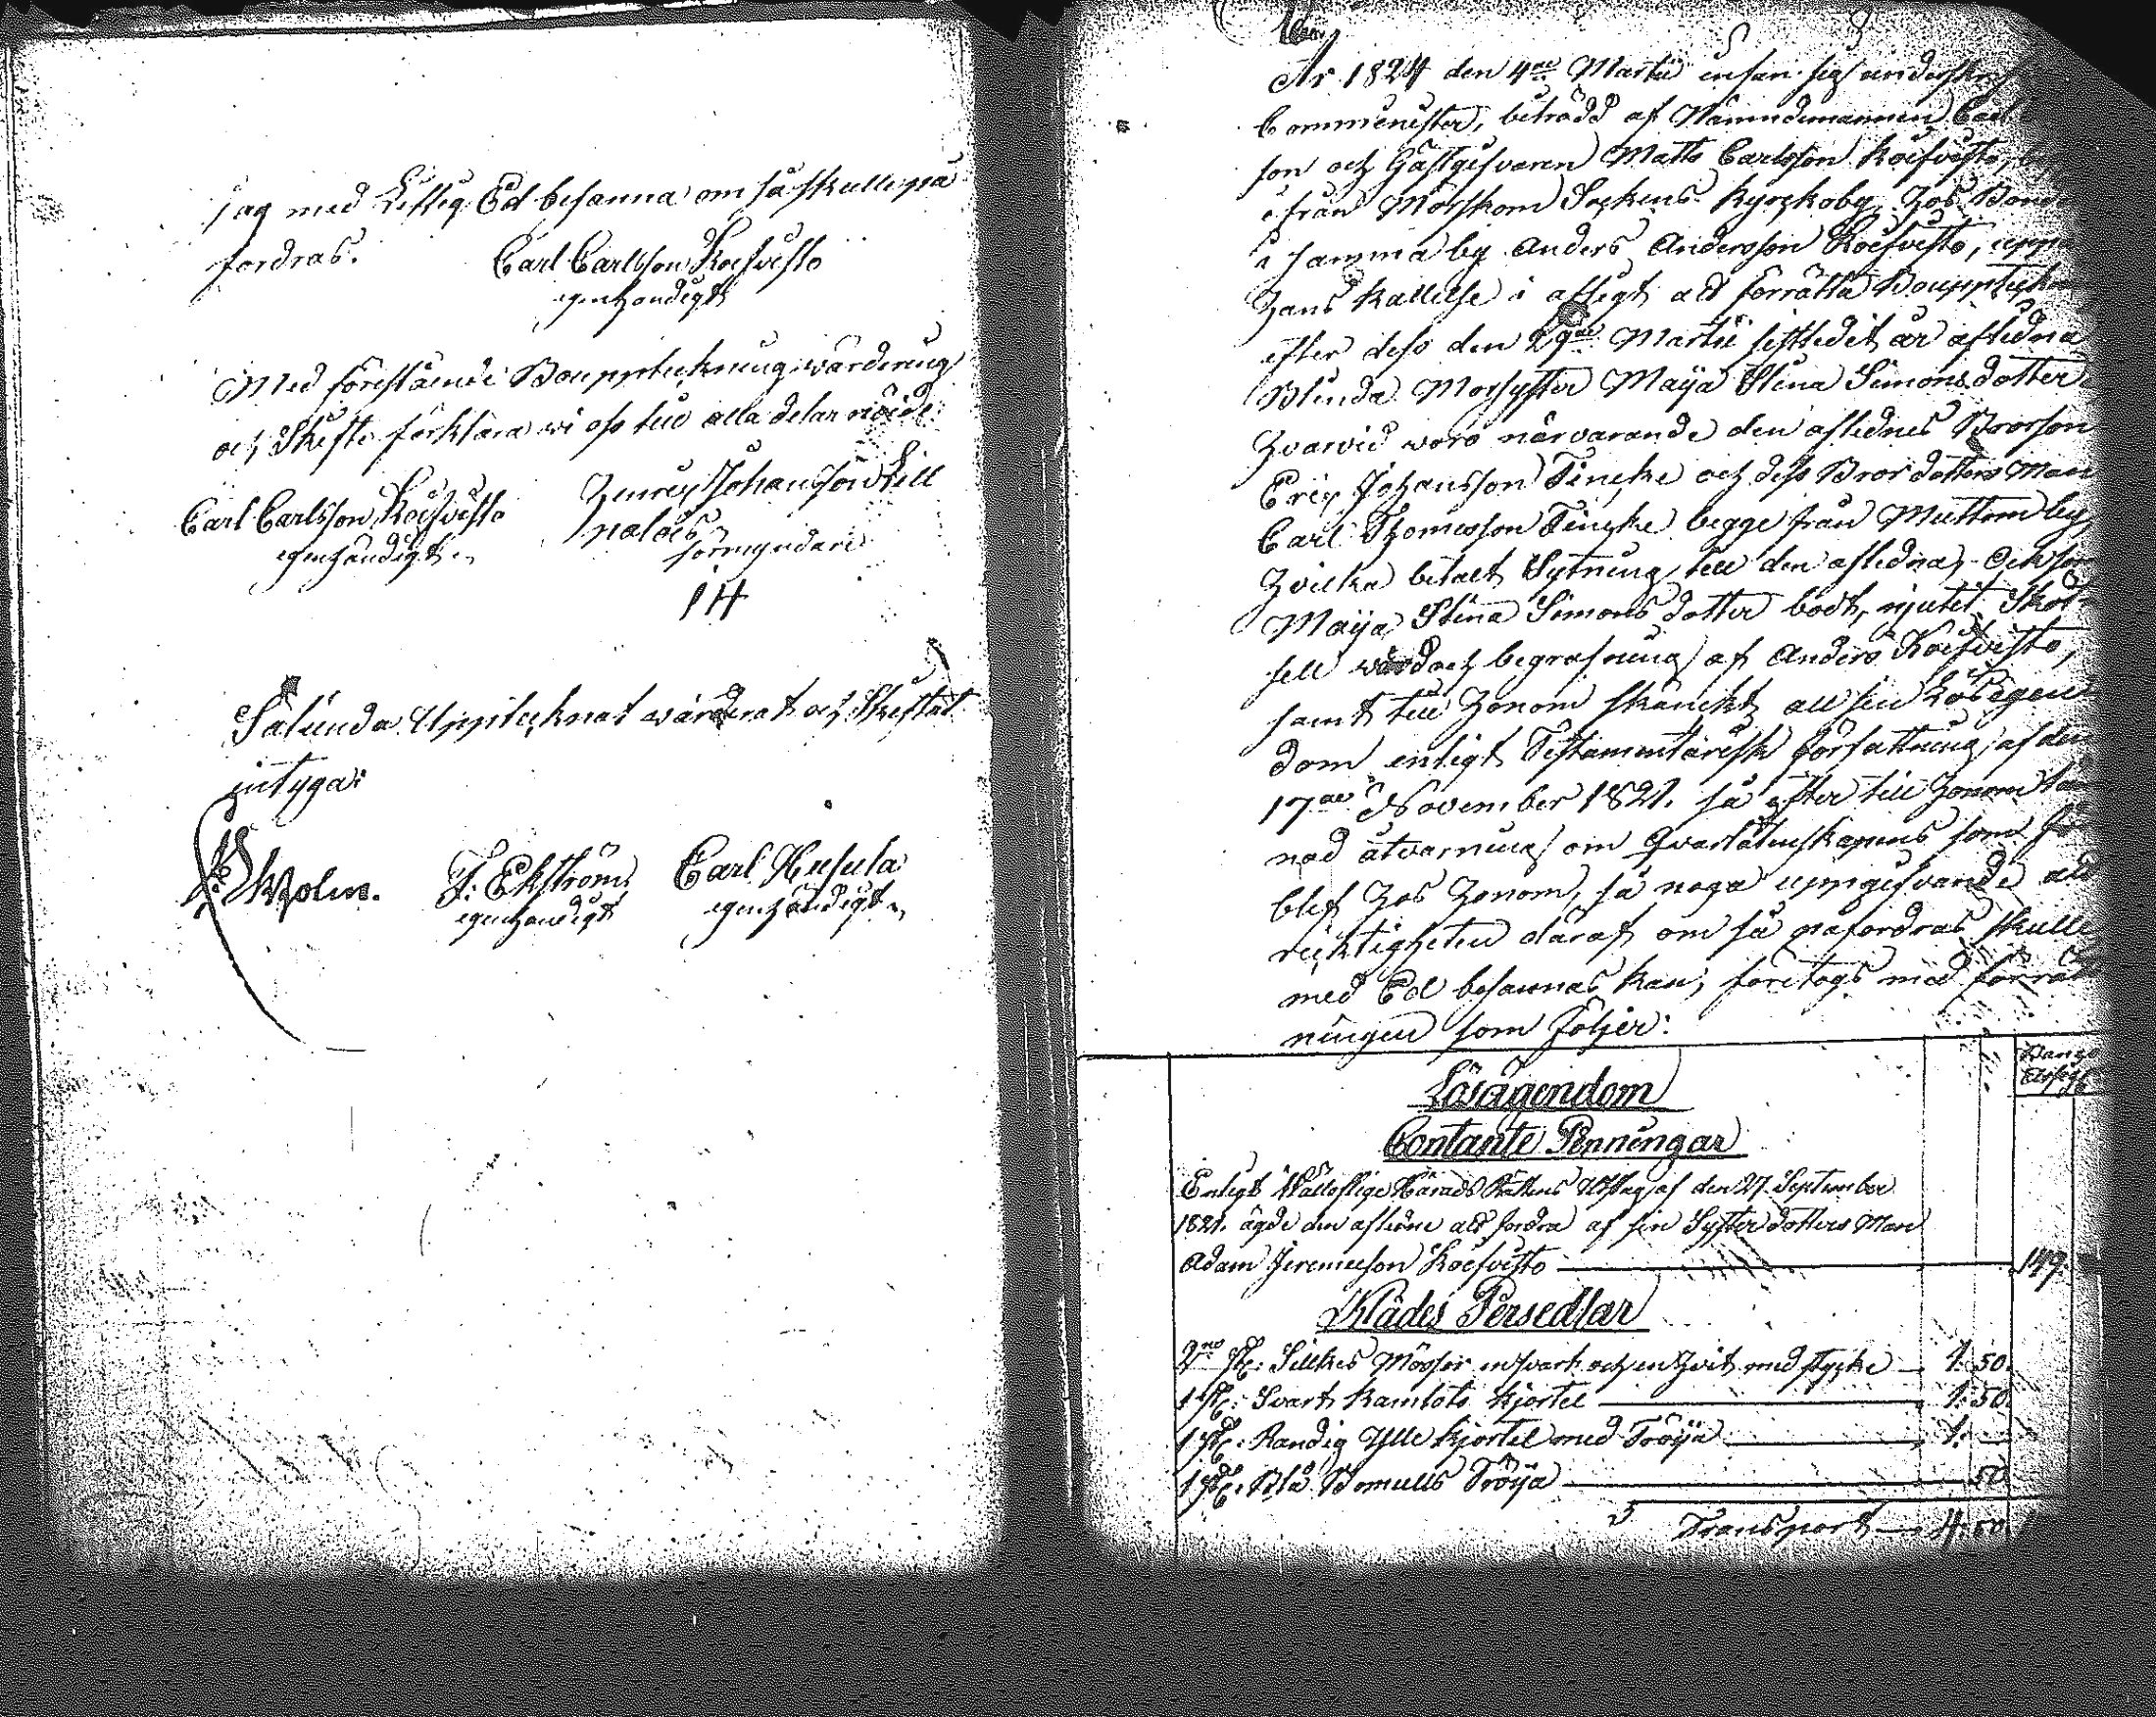 jag med Liflig Ed besanna om så skulle på
fordras.
Carl Carlsson Koifvisto
egenhändigt
Med förestående Bouppteckning, wärdering
och Skifte förklara wi oss till alla delar nöide.
Carl Carlsson Koifvisto
egenhändigt
Henrich Johansson Sill
förmyndare
Sålunda Upptecknat wärderat och Skiftat
intyga:
Holm.
F: Ekström
egenhändigt
Carl Husula
egenhändigt
År 1824 den 4de Martii infan sig
Commenister, biträdd af Nämndemannen Carl
son och Gästgifvaren Matts Carlsson Koifvisto,
ifrån Mörskom Sockens Kyrckoby, hos
i samma by Anders Andersson Koifvisto, uppå
hans kallelse i afsigt att förrätta
efter dess den 29de Martii sistledit år aflidna
Blinda Morsyster Maija Stina Simonsdotter
hvarvid woro närvarande den aflidnes Brorson
Eric Johansson Tincke och dess Brordotters Man
Carl Thomesson Tincke begge från by
hvilka betalt Sytning till den aflidna,
Maija Stina Simonsdotter bodt, njutit Sköt-
sell wård och begrafning af Anders Koifvisto,
samt till honom skänckt all sin Lösegen
dom enligt Testamentarisk författning af den
17de November 1821. så efter till honom
nad åtvarning om Qvarlåtenskapens som
blef hos honom, så noga uppgifvande att
ricktigheten däraf om så påfordras skulle
med Ed besannas kan, företogs med förrätt
ningen som följer:
Banco
Lösägendom
Contante Penningar
Enligt Wällofliga Härads Rättens Utslag af den 27 September
1821. ägde den aflidne att fordra af sin Systerdotters Man
Adam Jeremiesson Koifvisto 149.
Klädes Persedlar
2ne st: Silkes Mössor en svart och en hvit med stycke 1: 50.
1 st: Svart Kamlots Kjortel 1: 50.
1 st: Randig Ylle Kjortel med Tröija 1:
1 st: Blå Bomulls Tröija 50
Transport 4: 50.